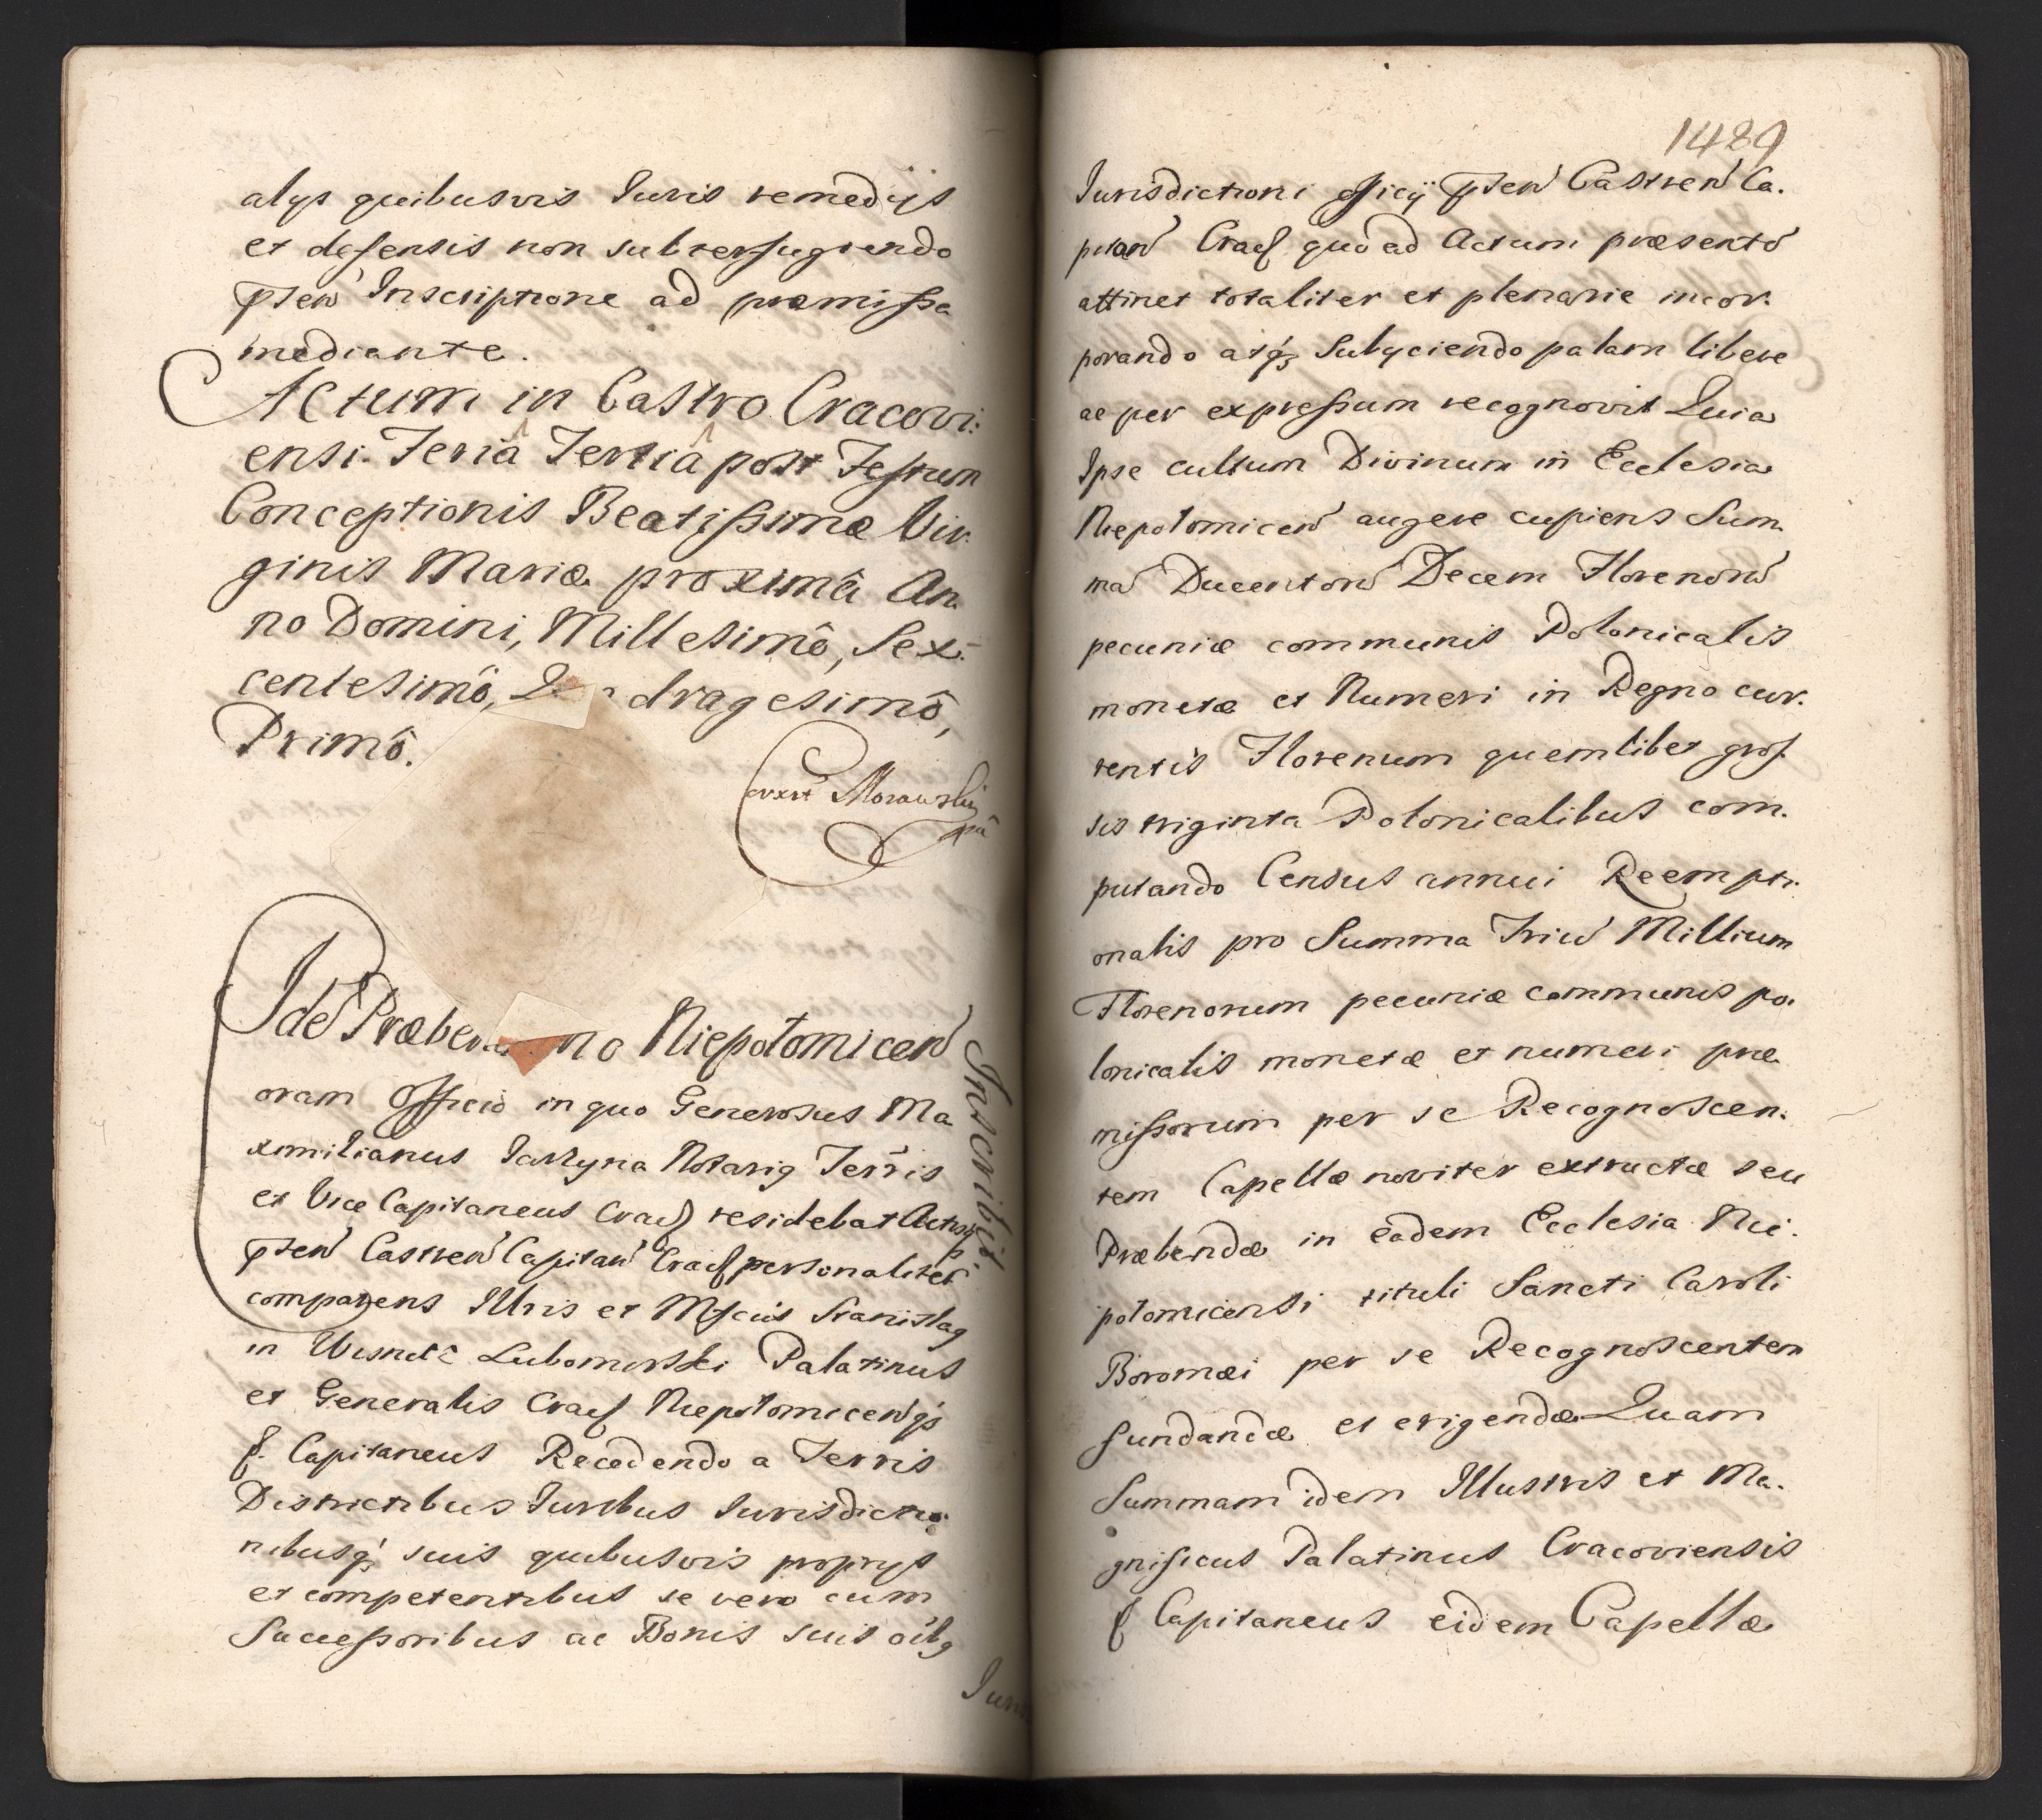 alys quibusvis Iuris remedijs
et defensis non subterfugiendo
pñteñ Inscriptione ad præmissa
mediante.
Actum in Castro Cracovi:
ensi. Feriâ Tertiâ post Festum
Conceptionis Beatissimæ Vir.
ginis Mariæ proximâ An.
no Domini, Millesimô, Sex:
centesimô, dragesimô,
Primô.
Morawski
Idẽ Præben no Niepolomiceñ
Inscribit
oram Officio in quo Generosus Ma
ximilianus Jarzyna Notarig Terris
et Vice Capitaneus Cracẞ residebat Actisq
pñteñ Castreñ Capitañ Cracẞ personaliter
comparens Illris et Mfcus Stanislag
in Wisnicz Lubomirski Palatinus
et Generalis Cracẞ Niepolomiceñq́3
ẞ. Capitaneus Recedendo a Terris
Districtibus Iuribus Iurisdictio
nibusq́3 suis quibusvis proprys
et competentibus se vero cum
Successoribus ac Bonis suis oibg
1489
Iurisdictioni officij pñteñ Castreñ Ca.
pitañ Cracẞ quo ad Actum præsentẽ
attinet totaliter et plenarie incor.
porando atq́3 Subyciendo palam libere
ac per expressum recognovit Quia
Ipse cultum Divinum in Ecclesia
Niepolomiceñ augere cupiens Sum
mã Ducentorũ Decem Florenorũ
pecuniæ communis Polonicalis
monetæ et Numeri in Regno cur.
rentis Florenum quemlibet gros.
sis triginta Polonicalibus com.
putando Census annui Reempti.
onalis pro Summa Triũ Millium
Florenorum pecuniæ communis po.
lonicalis monetæ et numeri præ
missorum per se Recognoscen.
tem Capellæ noviter extructæ seu
Præbendæ in eadem Ecclesia Nie.
polomicensi tituli Sancti Caroli
Boromæi per se Recognoscentem
fundandæ et erigendæ Quam
Summam idem Illustris et Ma.
gnificus Palatinus Cracoviensis
ẞ Capitaneus eidem Capellæ